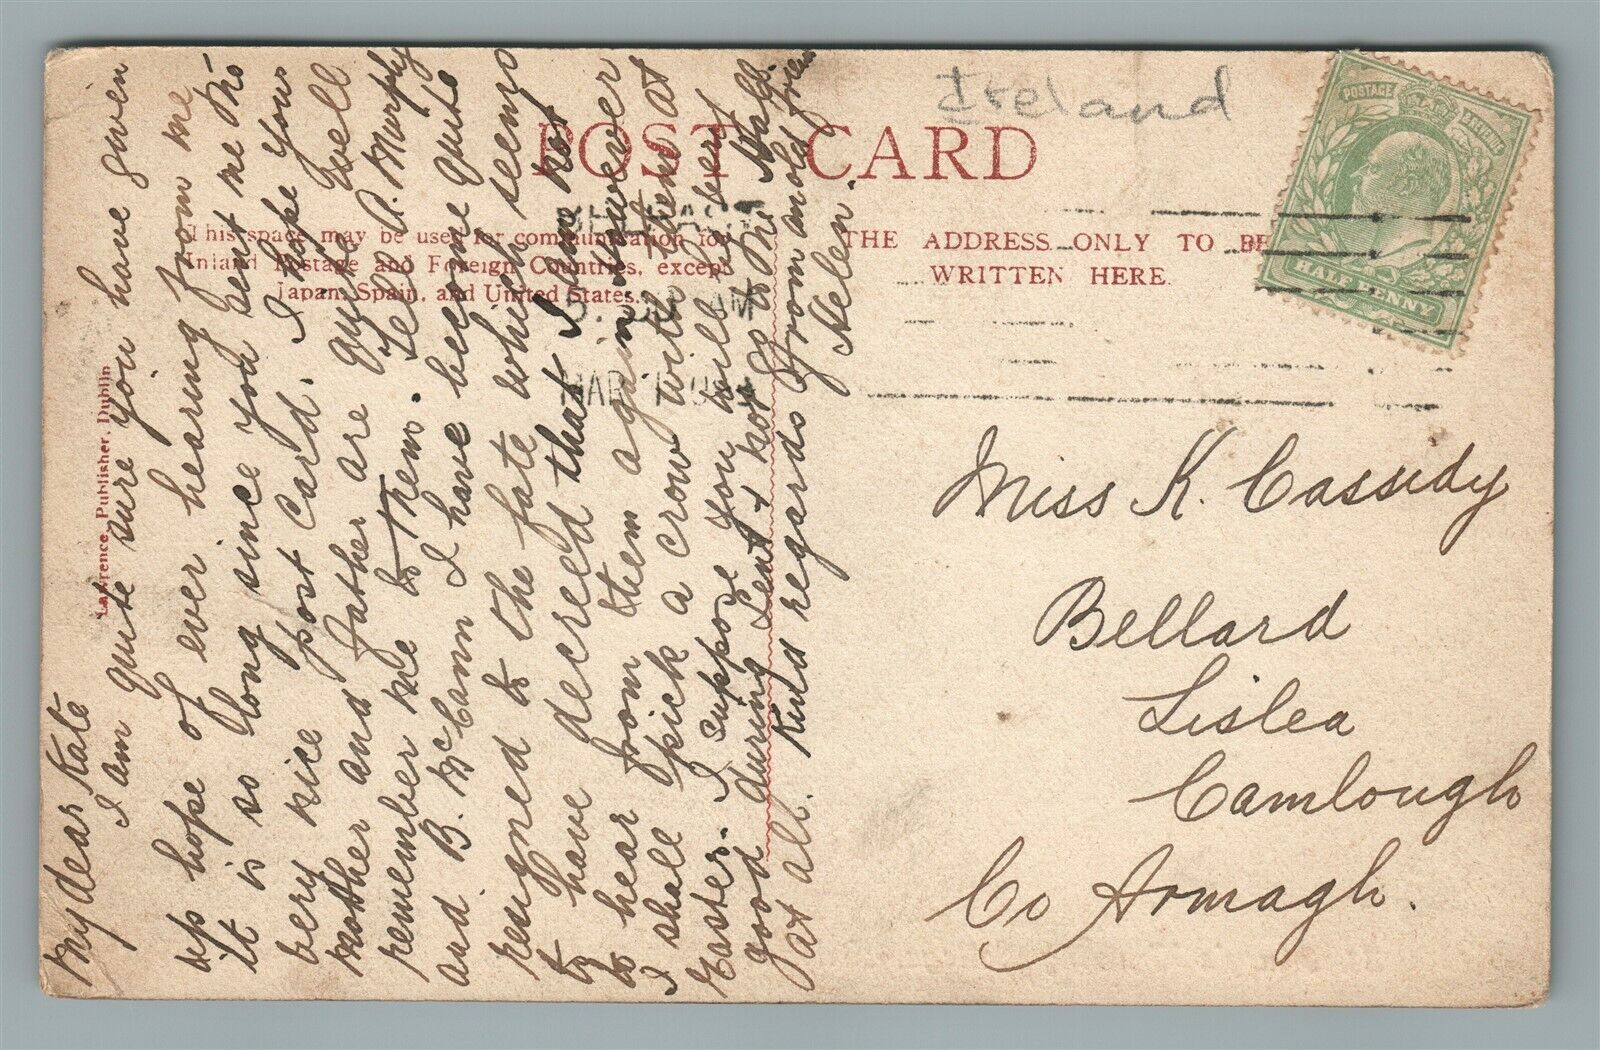 My dear Kate
I am quite sure you have given
up hope of ever hearing from me
it is so long since you sent me the
very nice post card. I hope your
mother and father are quite well
remember me to them. Tell A. Murphy
and B. McCann I have become quite
resigned to the fate which seems
to have decreed that I am not
to hear from them again. However
I shall pick a crow with them at
Easter. I suppose you will be very
good during Lent & not go to the Hall
at all. Kind regards from an old friend
Helen.
POST CARD
Ireland
This space may be used for communication for
Inland Postage and Foreign Countries, except
Japan, Spain, and United States.
THE ADDRESS ONLY TO BE
WRITTEN HERE.
Lawrence, Publisher, Dublin
BELFAST
AM
MAR
POSTAGE
REVENUE
HALF PENNY
Miss K. Cassidy
Bellard
Lislea
Camlough
Co Armagh.